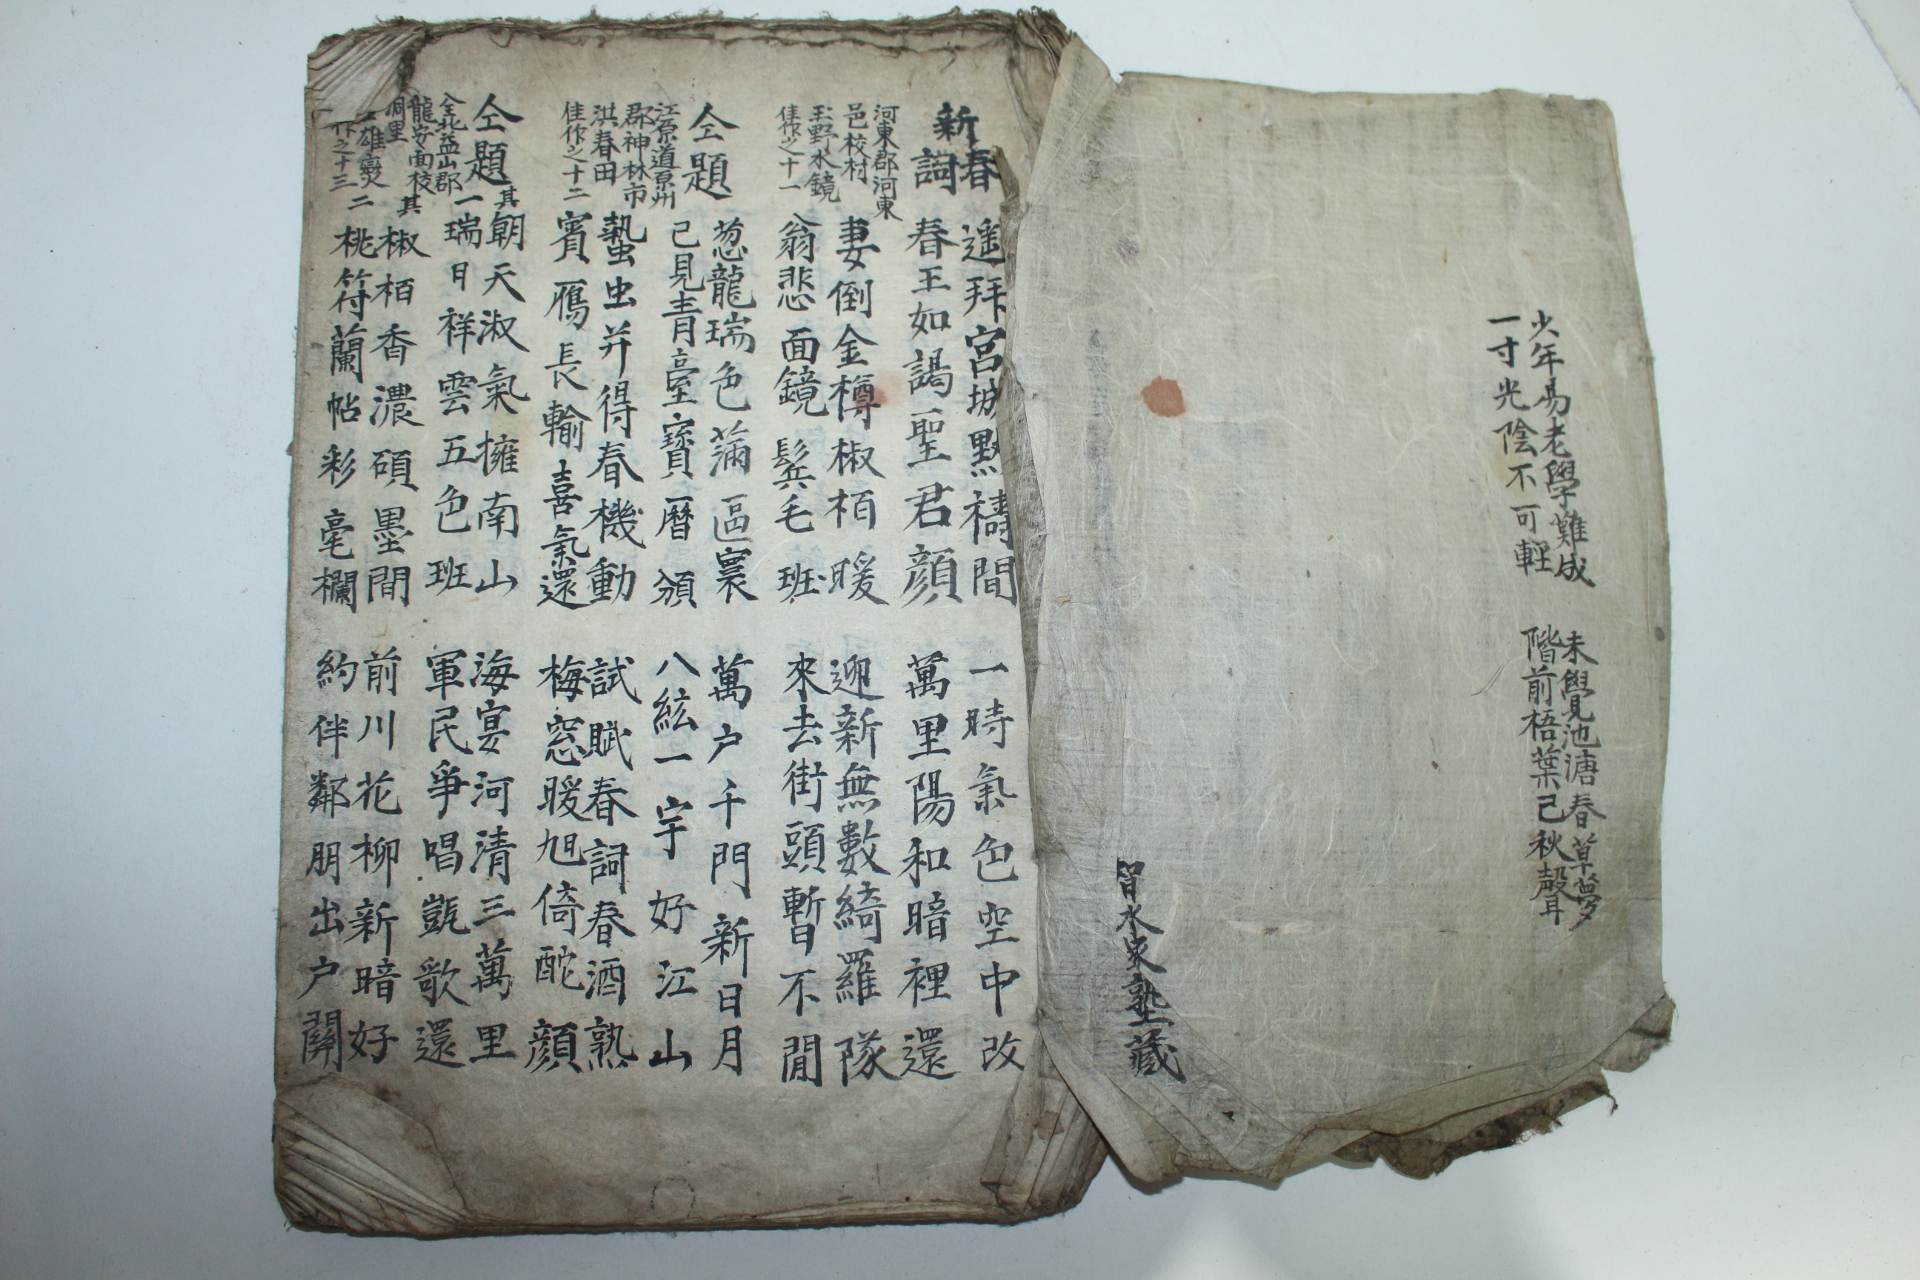 少年易老學難成
一寸光陰不可輕
未覺池溏春草夢
階前梧葉已秋聲
習水家塾藏
新春詞
河東郡河東
邑校村
玉野水鏡
佳作之十一
遥拜宮城黙禱間
一時氣色空中改
春王如謁聖君顔
萬里陽和暗裡還
妻倒金樽椒栢暖
迎新無數綺羅隊
翁悲面鏡鬂毛班
來去街頭暫不閒
仝題
江原道原州
郡神林市
洪春田
佳作之十二
葱龍瑞色滿區寰
萬户千門新日月
已見青臺寶曆頒
八紘一宇好江山
蟄虫并得春機動
試賦春詞春酒熟
賓鴈長輸喜氣還
梅窓暖旭倚酡顔
仝題
全北益山郡
龍安面校
洞里
雄爕
作之十三
其一
朝天淑氣擁南山
海宴河清三萬里
瑞日祥雲五色班
軍民爭唱凱歌還
其二
椒栢香濃碩墨間
前川花柳新暗好
桃符蘭帖彩毫欄
約伴鄰朋出户關